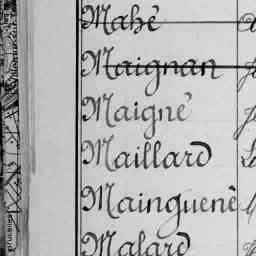 Mahé
Maignan
Maigné
Maillard
Mainguené
Malard